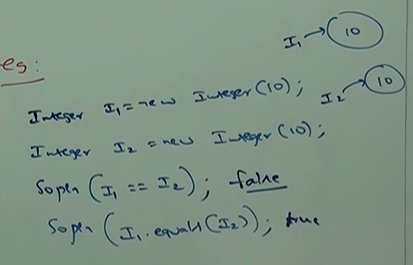 I₁ → 10
eg:
Integer I₁ = new Integer(10);
I₂ → 10
Integer I₂ = new Integer(10);
Sopln (I₁ == I₂); false
Sopln (I₁.equals(I₂)); true